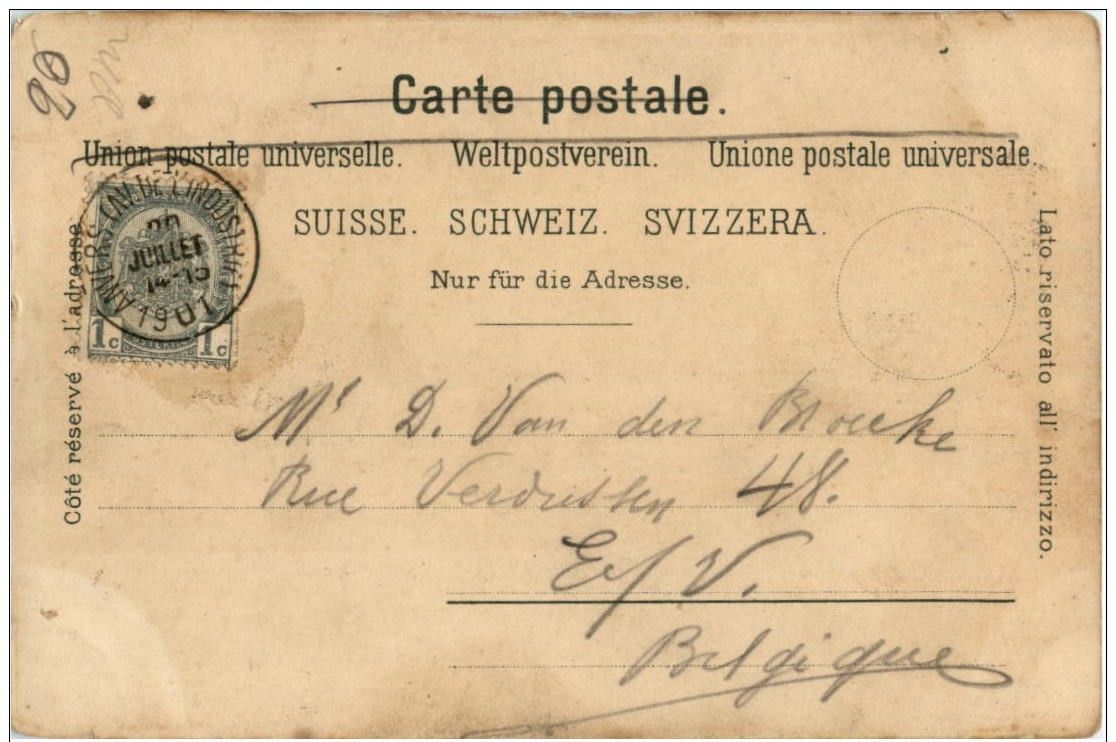 20
Carte postale.
Union postale universelle. Weltpostverein. Unione postale universale.
SUISSE. SCHWEIZ. SVIZZERA.
Nur für die Adresse.
Côté réservé à l'adresse
Lato riservato all' indirizzo.
ANVERS
JUILLET
14-15
1901
1c 1c
Mr D. Van den Broecke
Rue Verdussen 48.
E/V.
Belgique